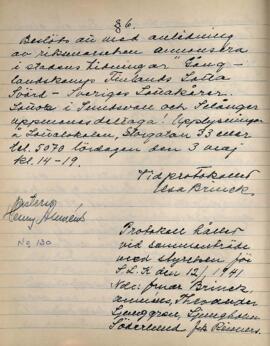 §6.
Beslöts att med anledning
av riksmarschen annonsera
i stadens tidningar "Gång-
landskamp Finlands Lotta
Svärd - Sveriges Lottakårer.
Lottor i Sundsvall och Selånger
uppmanas deltaga! Upplysningar
å Lottalokalen, Storgatan 33 eller
tel. 5070 lördagen den 3 maj
kl. 14-19.
Vid protokollet
Brinck.
Justeras
Nº 130
Protokoll hållet
vid sammanträde
med styrelsen för
S.L.K den 12/ 1941
Brinck,
Ljunggren, Ljungholm
Söderlund